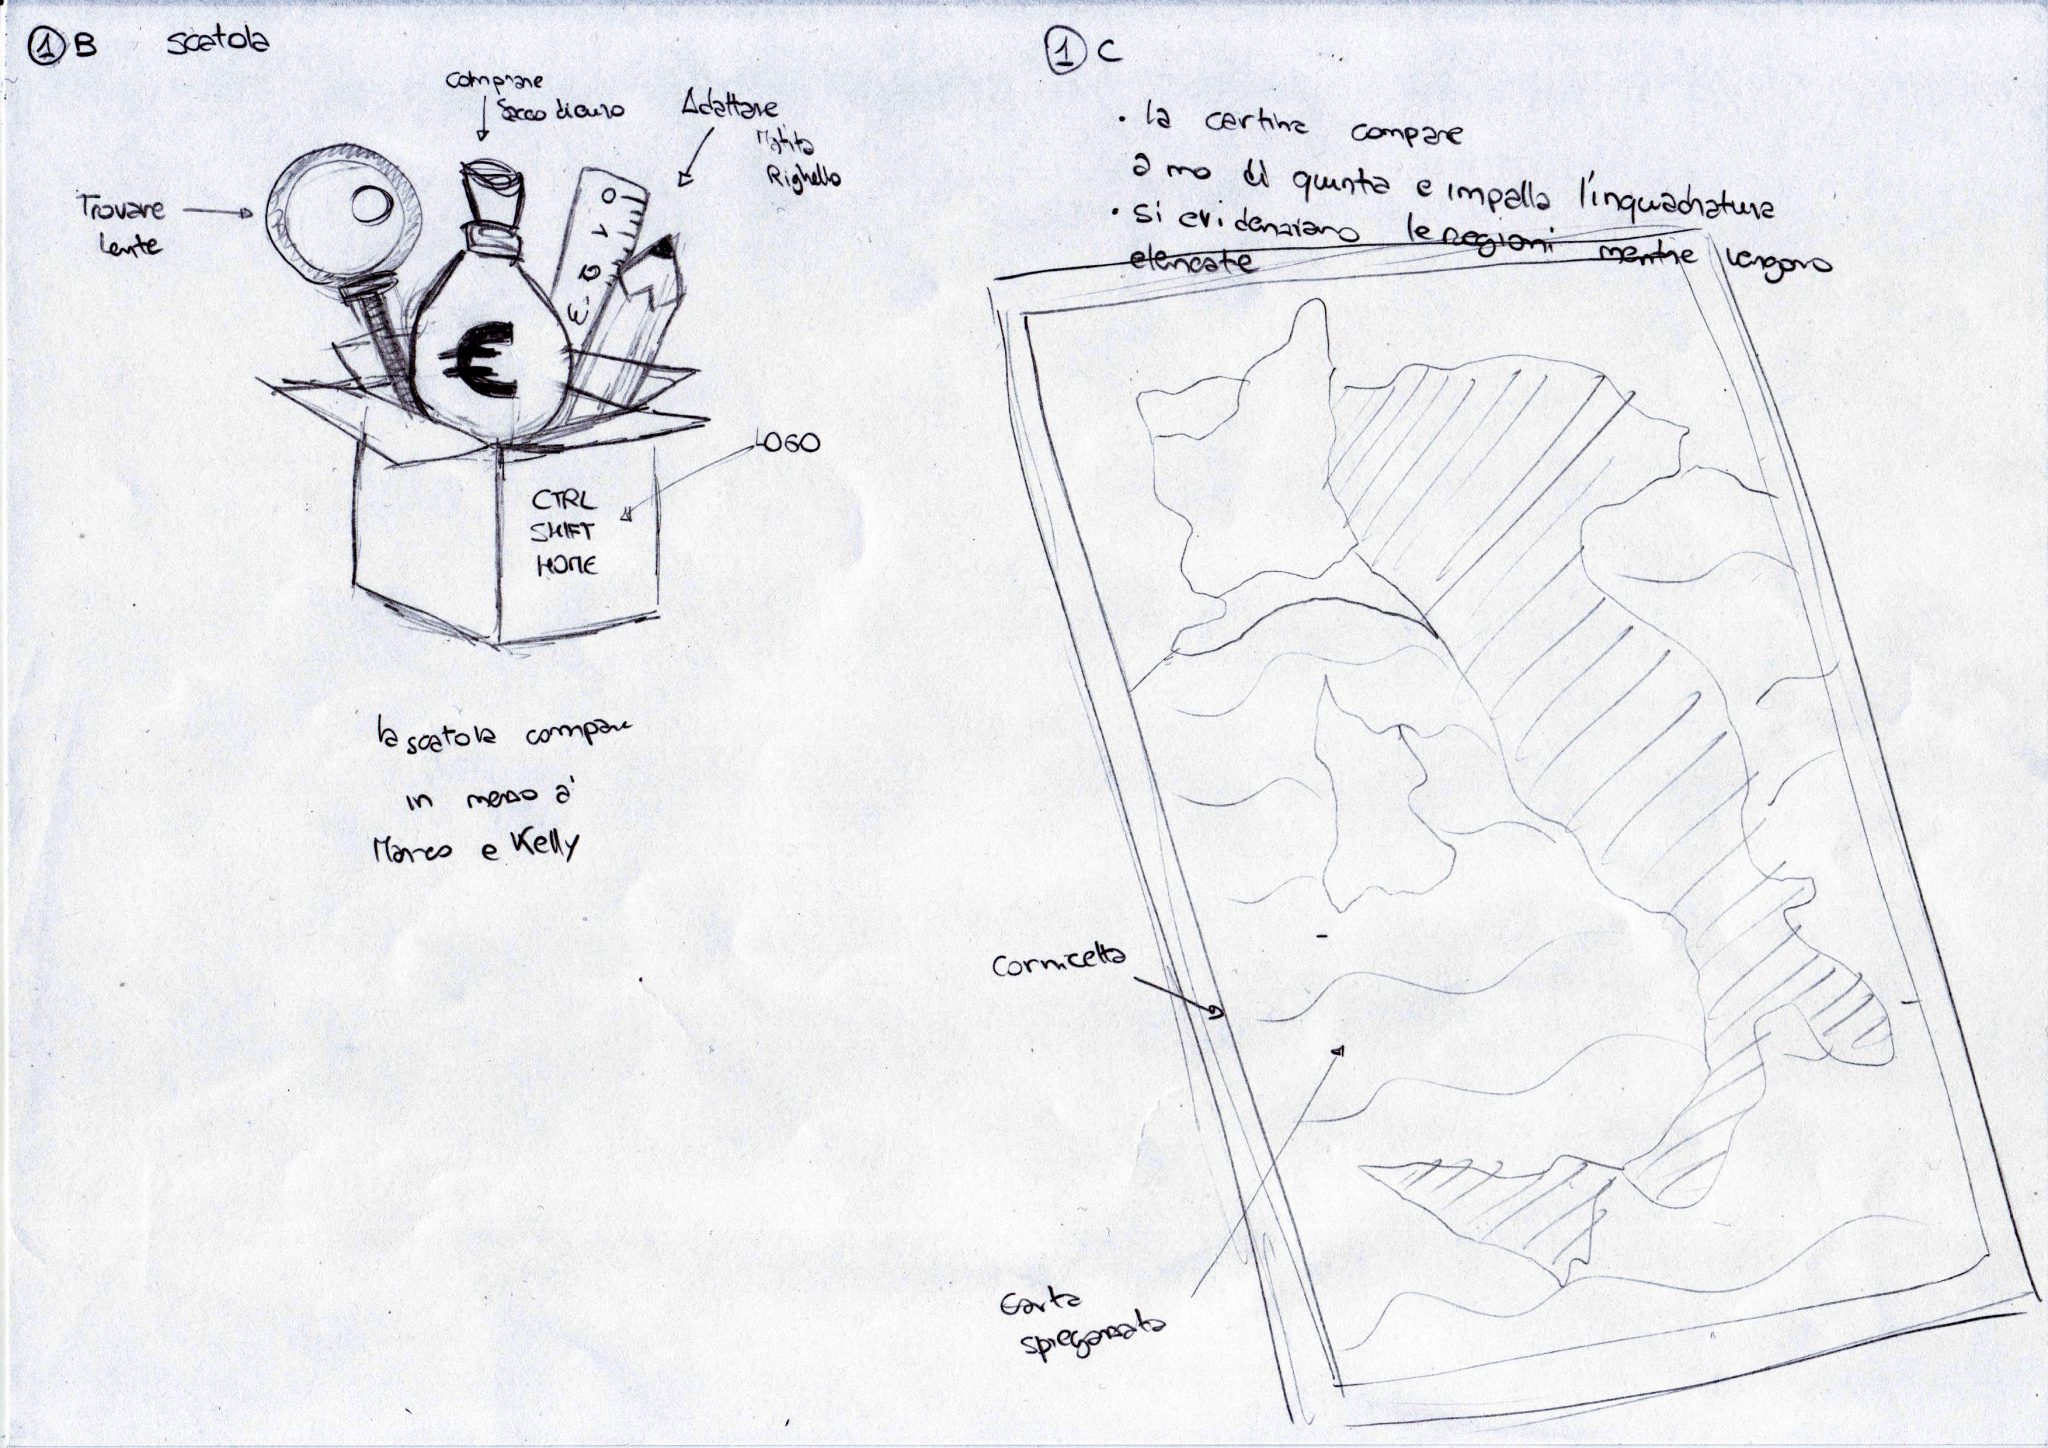 1 B scatola
comprare
sacco di euro
Adattare
Matita
Righello
Trovare
lente
0
1
2
3
€
LOGO
CTRL
SHIFT
HOME
la scatola compare
in mezzo a
Marco e Kelly
1 C
• la cartina compare
a mo di quinta e impalla l'inquadratura
• si evidenziano le regioni mentre vengono
elencate
cornicetta
Carta
spiegazzata